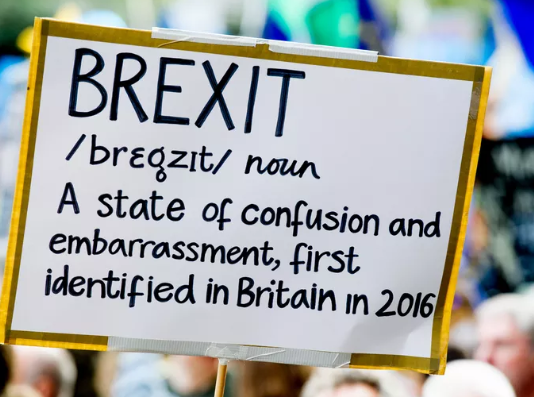 BREXIT
/brɛgzɪt/ noun
A state of confusion and
embarrassment, first
identified in Britain in 2016